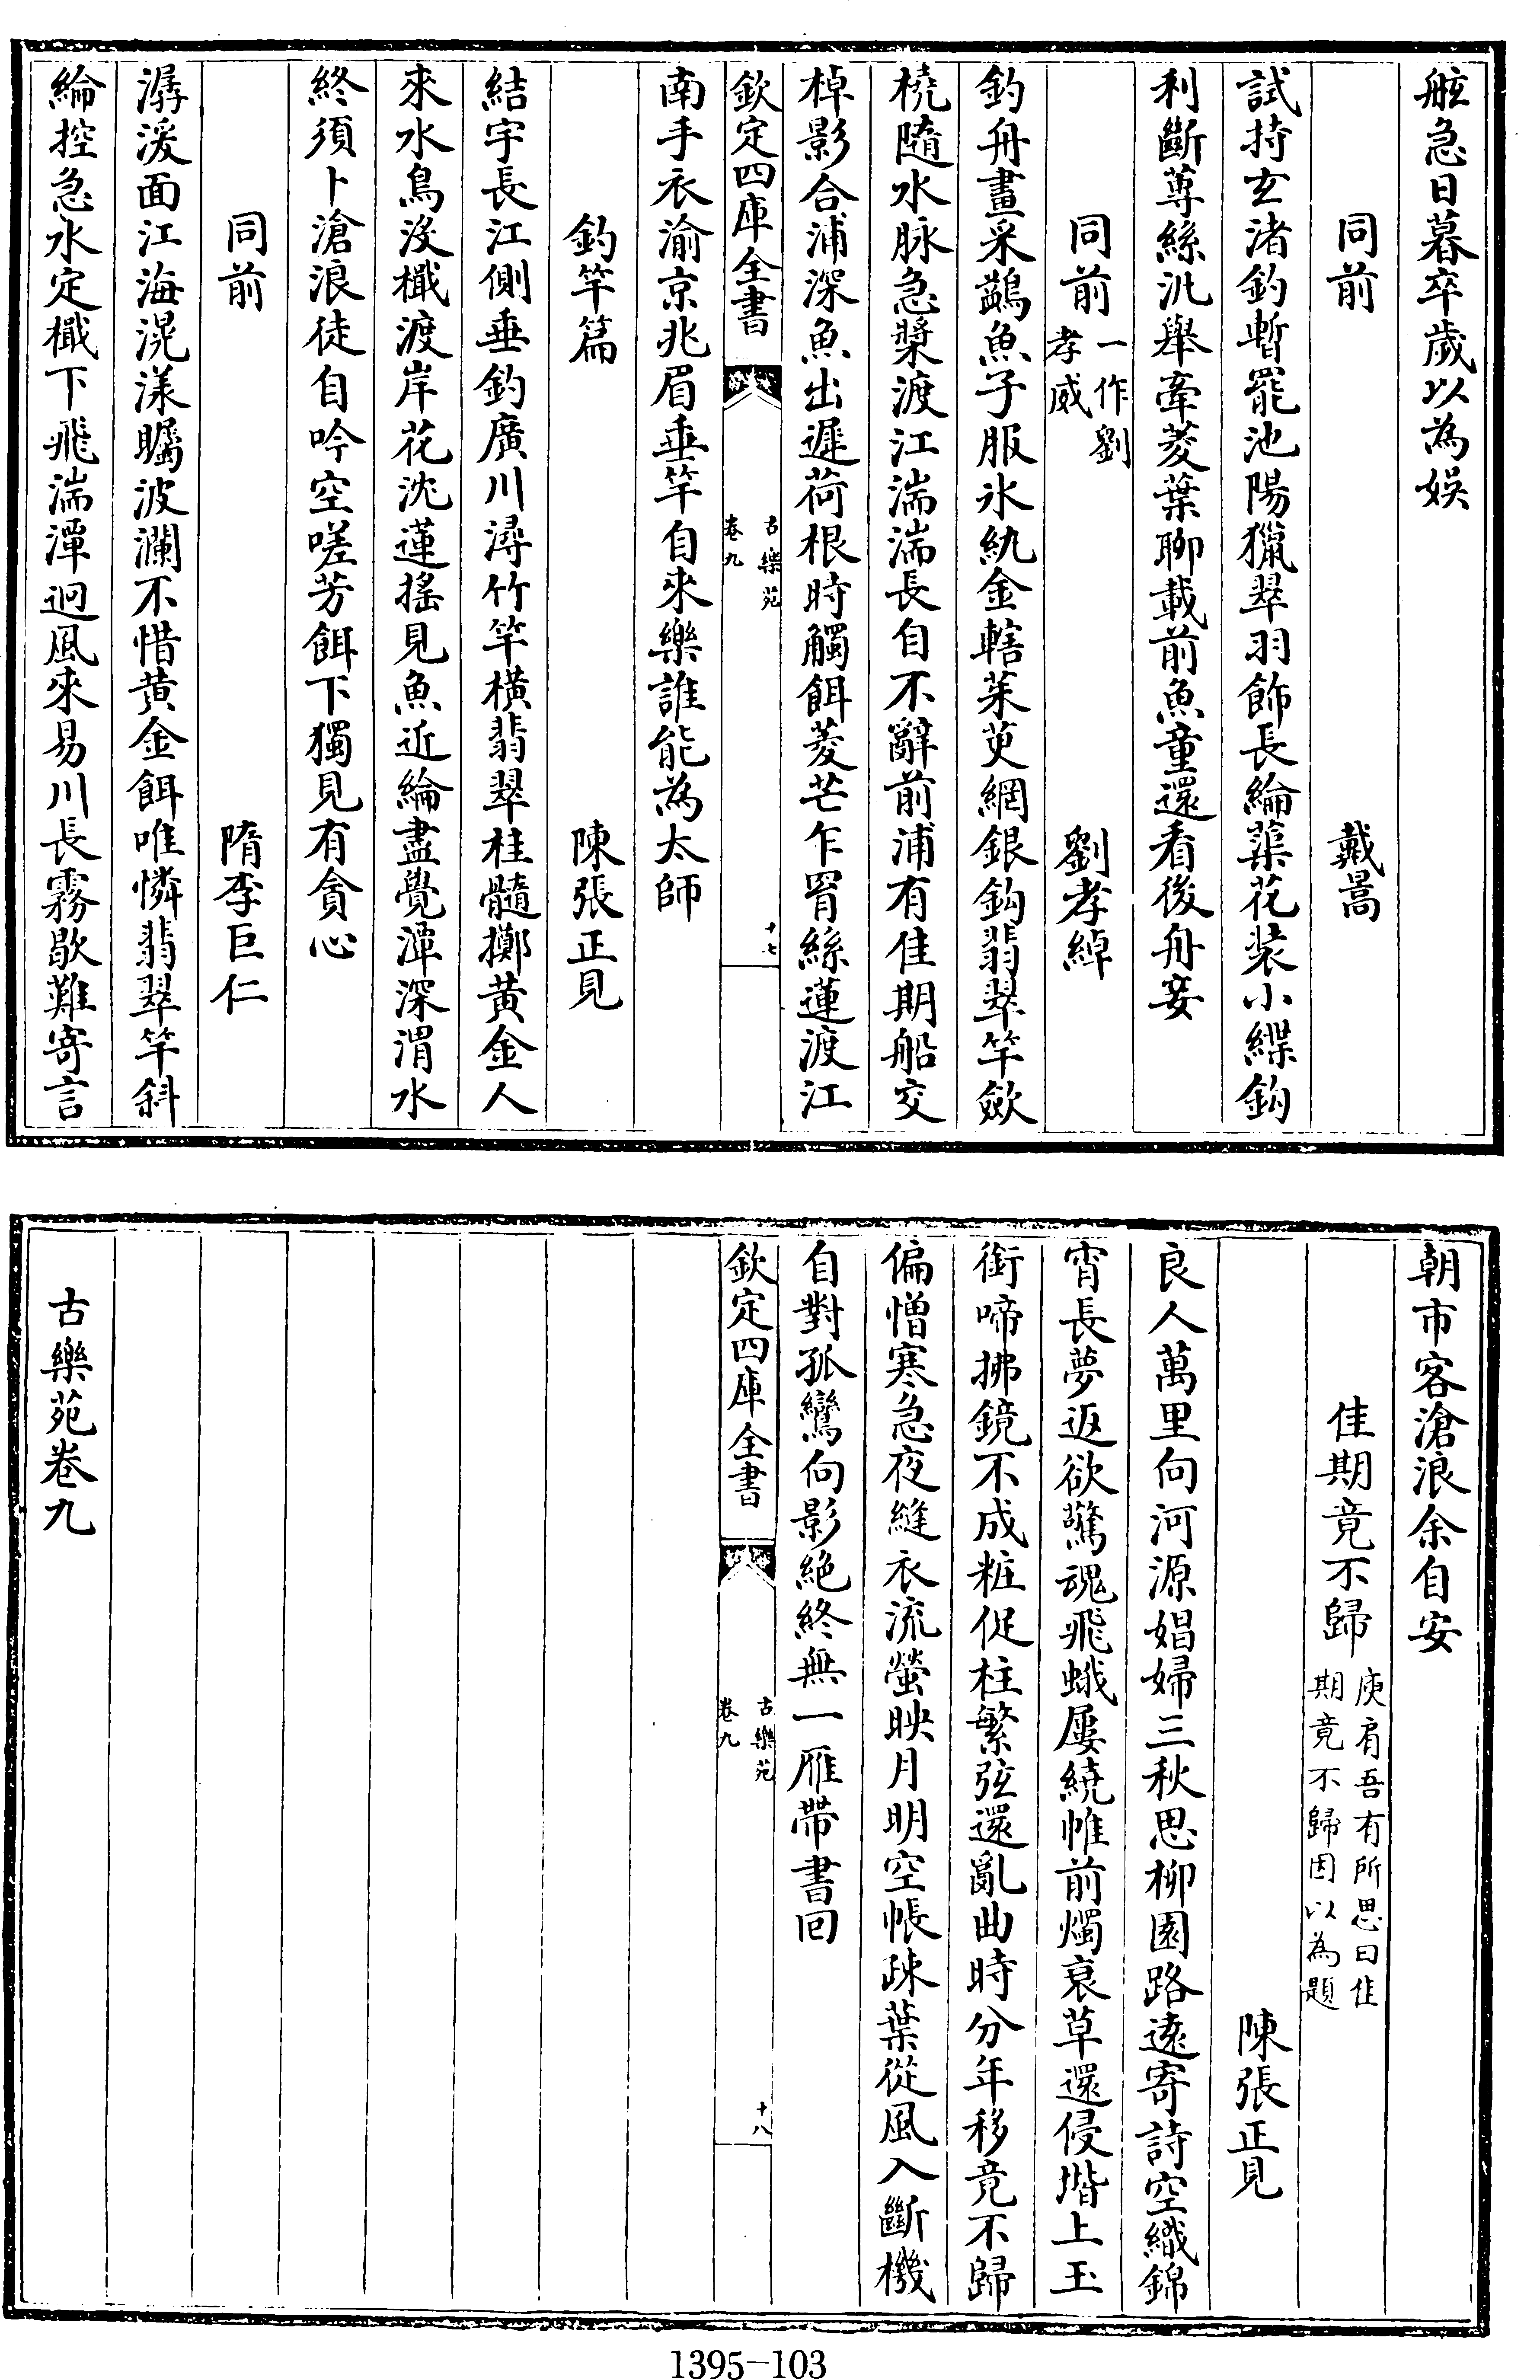 舷急日暮卒歲以為娛
同前 戴暠
試持玄渚釣暫罷池陽獵翠羽飾長綸蕖花装小緤鈎
利斷蓴絲汎舉牽菱葉聊載前魚童還看後舟妾
同前 一作劉孝威 劉孝綽
釣舟畫采鷁魚子服氷紈金轄茱萸網銀鈎翡翠竿斂
橈隨水脉急槳渡江湍湍長自不辭前浦有佳期船交
棹影合浦深魚出遲荷根時觸餌菱芒乍罥絲蓮渡江
欽定四庫全書 古樂苑 卷九 十七
南手衣渝京兆眉垂竿自來樂誰能為太師
釣竿篇 陳張正見
結宇長江側垂釣廣川潯竹竿橫翡翠桂髓擲黄金人
來水鳥沒檝渡岸花沈蓮搖見魚近綸盡覺潭深渭水
終須卜滄浪徒自吟空嗟芳餌下獨見有貪心
同前 隋李巨仁
潺湲面江海滉漾矚波瀾不惜黄金餌唯憐翡翠竿斜
綸控急水定檝下飛湍潭迥風來易川長霧歇難寄言
朝市客滄浪余自安
佳期竟不歸 庾肩吾有所思曰佳期竟不歸因以為題
陳張正見
良人萬里向河源娼婦三秋思柳園路遠寄詩空織錦
宵長夢返欲驚魂飛蛾屢繞帷前燭衰草還侵堦上玉
銜啼拂鏡不成粧促柱繁弦還亂曲時分年移竟不歸
偏憎寒急夜縫衣流螢映月明空帳疎葉從風入斷機
自對孤鸞向影絶終無一雁帶書回
欽定四庫全書 古樂苑 卷九 十八
古樂苑卷九
1395-103